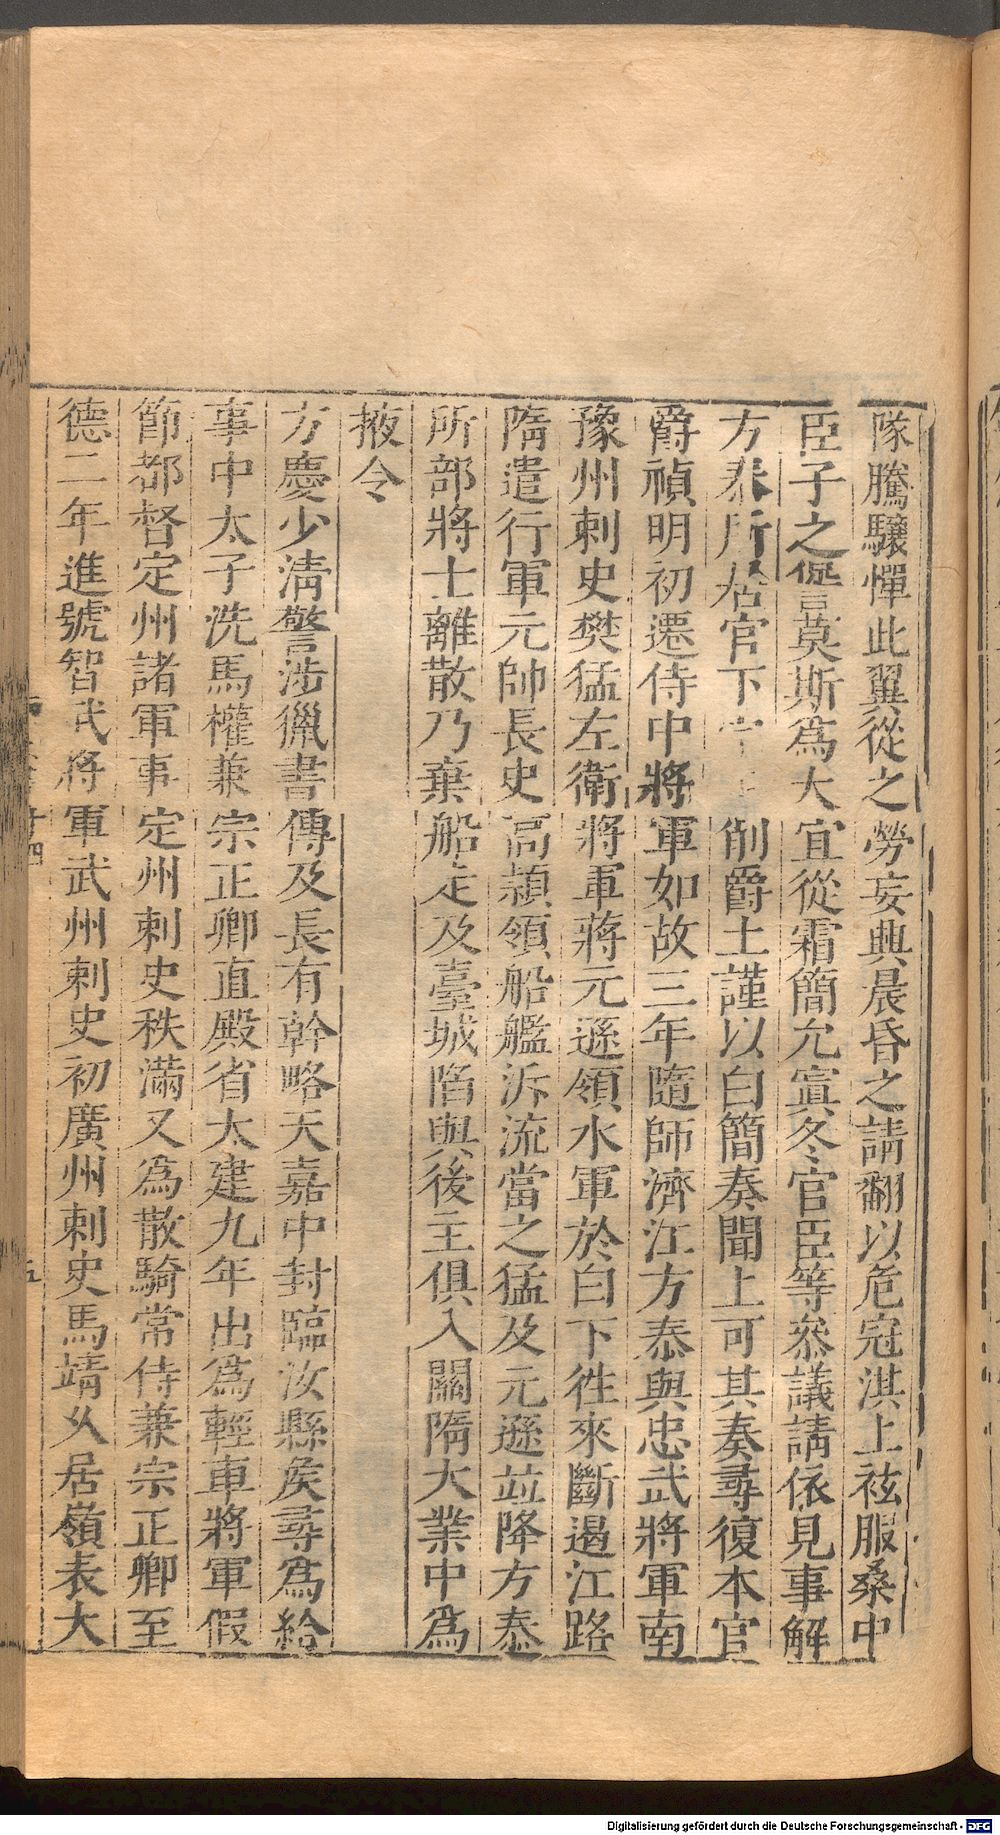 隊騰驤憚此翼從之勞妄興晨昏之請翻以危冠淇上袨服桑中
臣子之諐莫斯為大宜從霜簡允寘冬官臣等叅議請依見事解
方泰所居官下削爵土謹以白簡奏聞上可其奏尋復本官
爵禎明初遷侍中將軍如故三年隨師濟江方泰與忠武將軍南
豫州刺史樊猛左衛將軍蔣元遜領水軍於白下徃來斷遏江路
隋遣行軍元帥長史高熲領船艦泝流當之猛及元遜竝降方泰
所部將士離散乃棄船走及臺城陷與後主俱入關隋大業中為
掖令
方慶少清警涉獵書傳及長有幹略天嘉中封臨汝縣矦尋為給
事中太子洗馬權兼宗正卿直殿省太建九年出為輕車將軍假
節都督定州諸軍事定州刺史秩滿又為散騎常侍兼宗正卿至
德二年進號智武將軍武州刺史初廣州刺史馬靖乆居嶺表大
十四
五
Digitalisierung gefördert durch die Deutsche Forschungsgemeinschaft - DFG